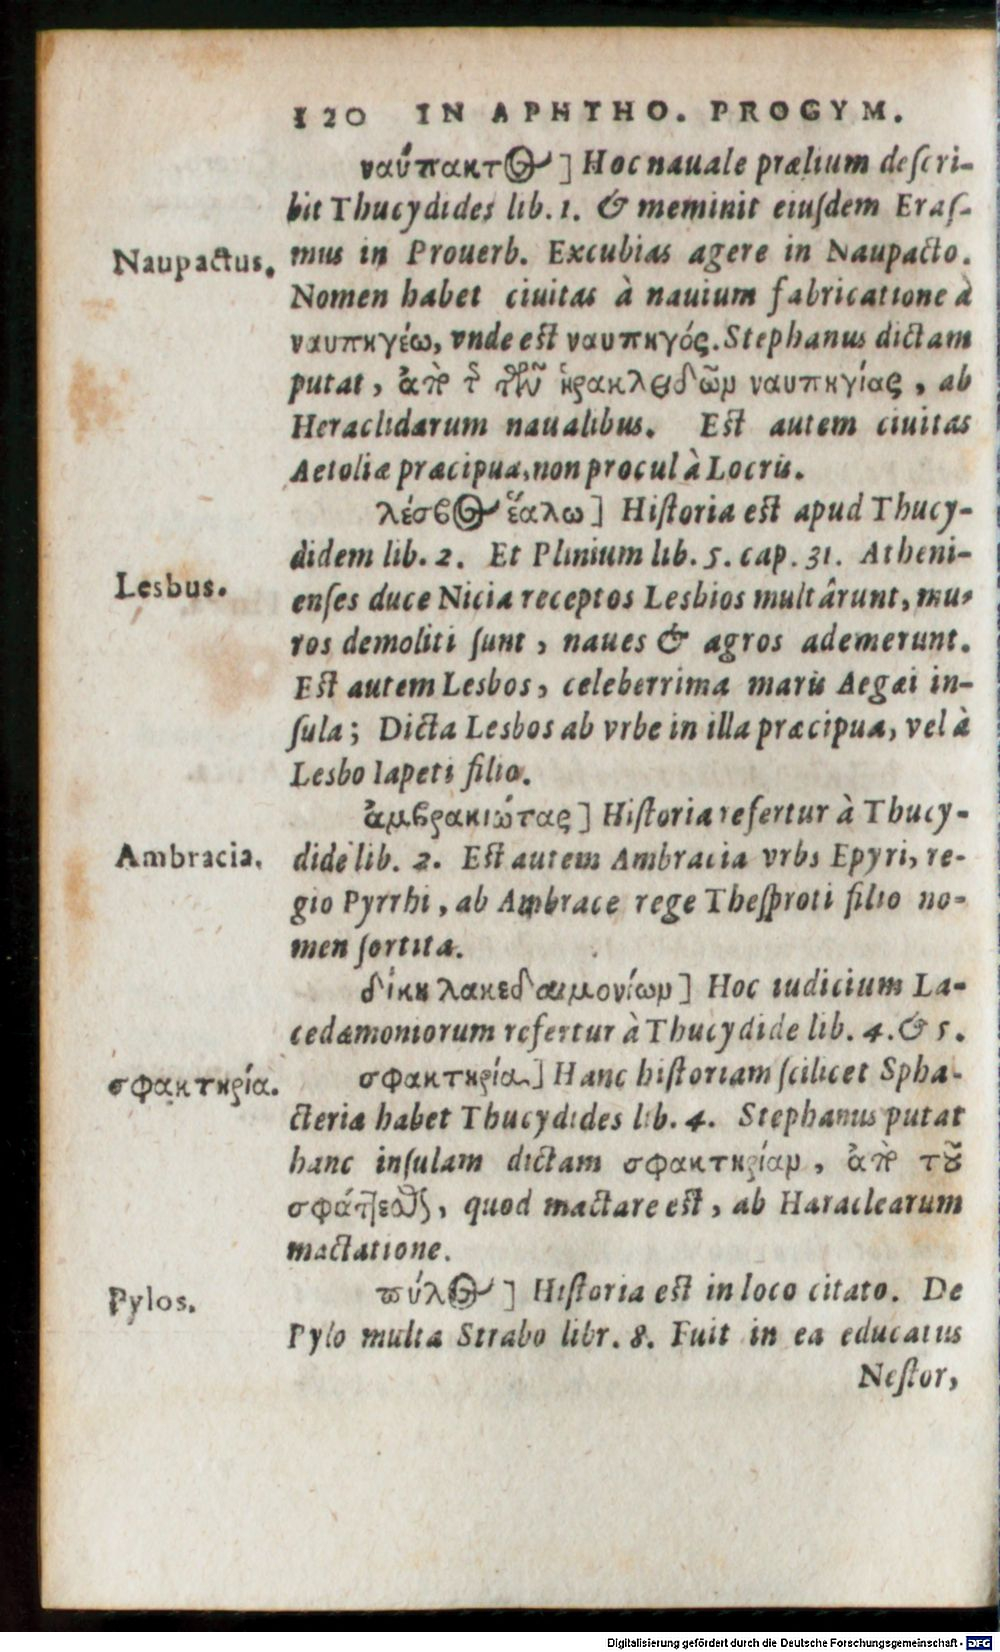 120 IN APHTHO. PROGYM.
ναύπακτος] Hoc nauale prælium descri-
bit Thucydides lib. 1. & meminit eiusdem Eras-
Naupactus. mus in Prouerb. Excubias agere in Naupacto.
Nomen habet ciuitas à nauium fabricatione à
ναυπηγέω, vnde est ναυπηγός. Stephanus dictam
putat, ἀπὸ τ τῶν ἡρακλειδῶν ναυπηγίας, ab
Heraclidarum naualibus. Est autem ciuitas
Aetoliæ præcipua, non procul à Locris.
λέσβος ἑάλω] Historia est apud Thucy-
didem lib. 2. Et Plinium lib. 5. cap. 31. Atheni-
Lesbus. enses duce Nicia receptos Lesbios multârunt, mu-
ros demoliti sunt, naues & agros ademerunt.
Est autem Lesbos, celeberrima maris Aegæi in-
sula; Dicta Lesbos ab vrbe in illa præcipua, vel à
Lesbo Iapeti filio.
ἀμβρακιώτας] Historia refertur à Thucy-
Ambracia. dide lib. 2. Est autem Ambracia vrbs Epyri, re-
gio Pyrrhi, ab Ambrace rege Thesproti filio no-
men sortita.
δίκη λακεδαιμονίων] Hoc iudicium La-
cedæmoniorum refertur à Thucydide lib. 4. & 5.
σφακτηρία. σφακτηρία] Hanc historiam scilicet Spha-
cteria habet Thucydides lib. 4. Stephanus putat
hanc insulam dictam σφακτηρίαν, ἀπὸ τοῦ
σφάττεσθαι, quod mactare est, ab Haraclearum
mactatione.
Pylos. πύλος] Historia est in loco citato. De
Pylo multa Strabo libr. 8. Fuit in ea educatus
Nestor,
Digitalisierung gefördert durch die Deutsche Forschungsgemeinschaft - DFG